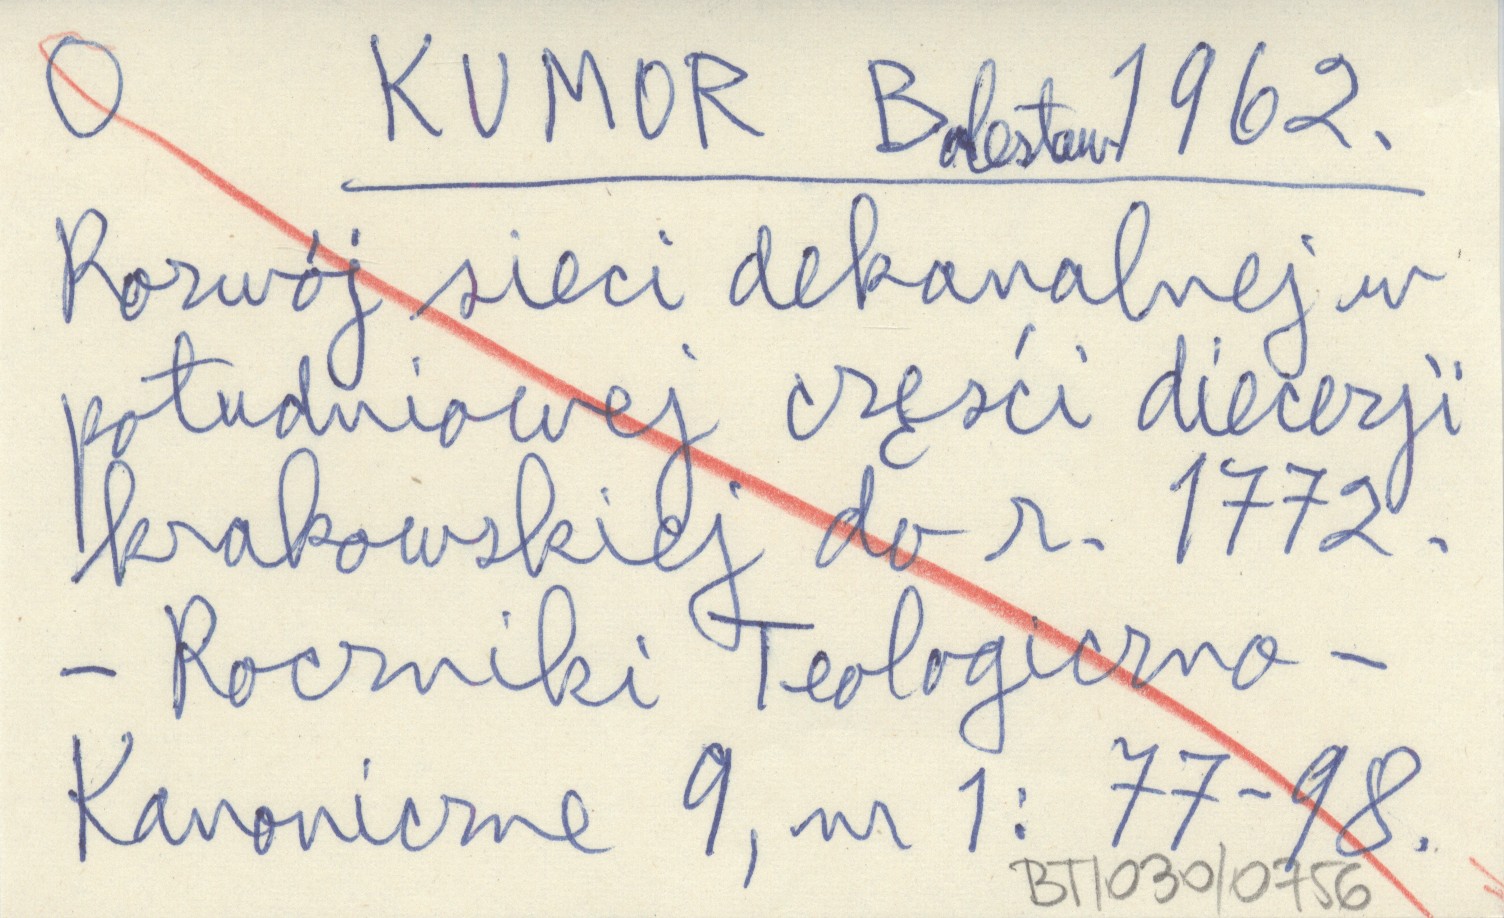 O KUMOR Bolesław 1962.
Rozwój sieci dekanalnej w
południowej części diecezji
krakowskiej do r. 1772.
- Roczniki Teologiczno -
Kanoniczne 9, nr 1: 77-98.
BT/030/0756